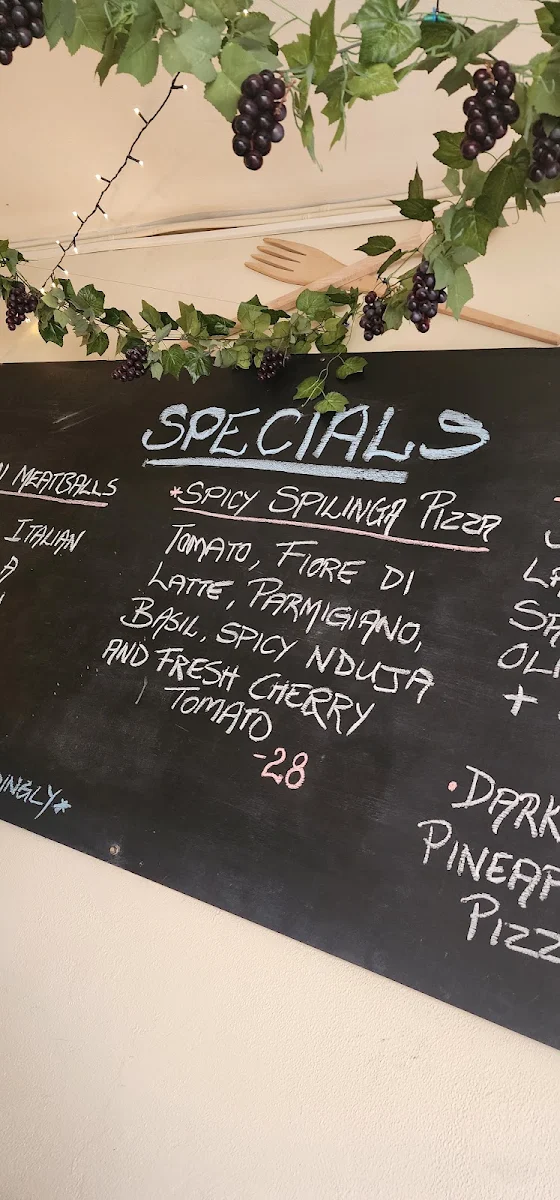 SPECIALS
MEATBALLS
ITALIAN
*SPICY SPILINGA PIZZA
TOMATO, FIORE DI
LATTE, PARMIGIANO,
BASIL, SPICY NDUJA
AND FRESH CHERRY
TOMATO
-28
+
•DARK
PIZZ